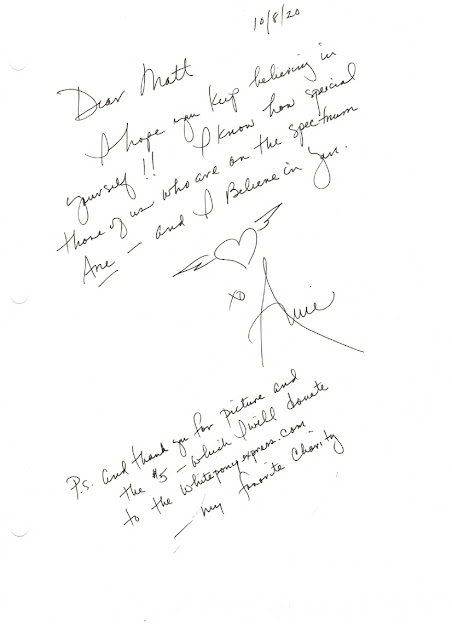 10/8/20
Dear Matt
I hope you keep believing in
yourself!! I know how special
those of us who are on the spectrum
Are — and I Believe in You.
xo
P.S. and thank you for picture and
the $5 – which I will donate
to the Whiteponyexpress.com
— my favorite Charity